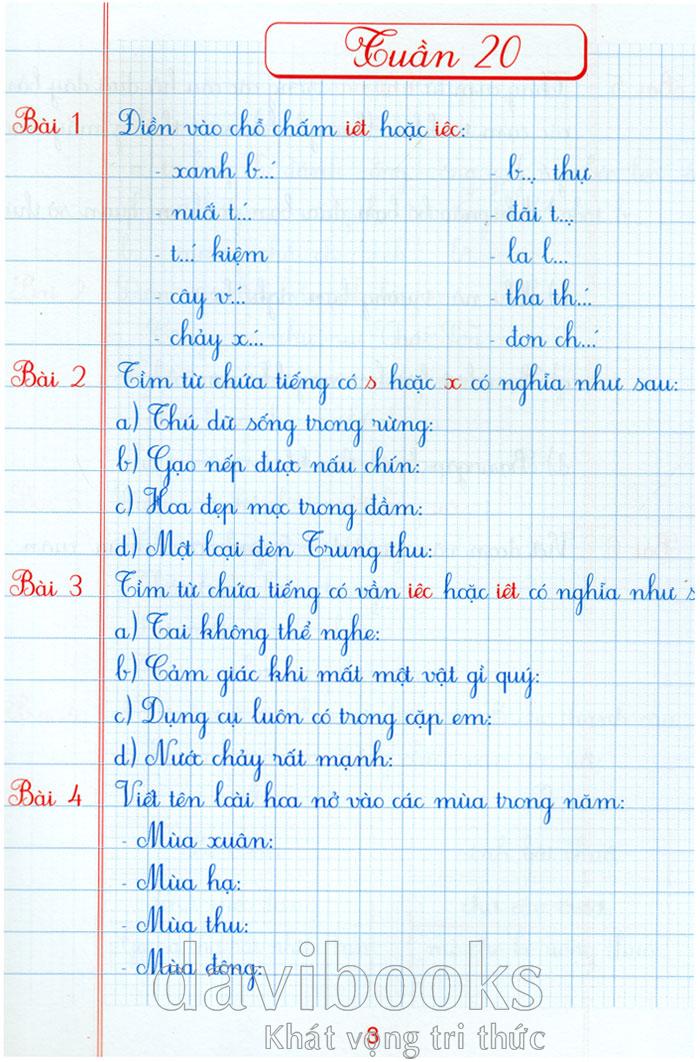 Tuần 20
Bài 1 Điền vào chỗ chấm iêt hoặc iêc:
- xanh b...́ - b...̣ thự
- nuối t...́ - đãi t...̣
- t...́ kiệm - la l...
- cây v...́ - tha th...́
- chảy x...́ - đơn ch...́
Bài 2 Tìm từ chứa tiếng có s hoặc x có nghĩa như sau:
a) Thú dữ sống trong rừng:
b) Gạo nếp được nấu chín:
c) Hoa đẹp mọc trong đầm:
d) Một loại đèn Trung thu:
Bài 3 Tìm từ chứa tiếng có vần iêc hoặc iêt có nghĩa như s
a) Tai không thể nghe:
b) Cảm giác khi mất một vật gì quý:
c) Dụng cụ luôn có trong cặp em:
d) Nước chảy rất mạnh:
Bài 4 Viết tên loài hoa nở vào các mùa trong năm:
- Mùa xuân:
- Mùa hạ:
- Mùa thu:
- Mùa đông:
davibooks
Khát vọng tri thức
3